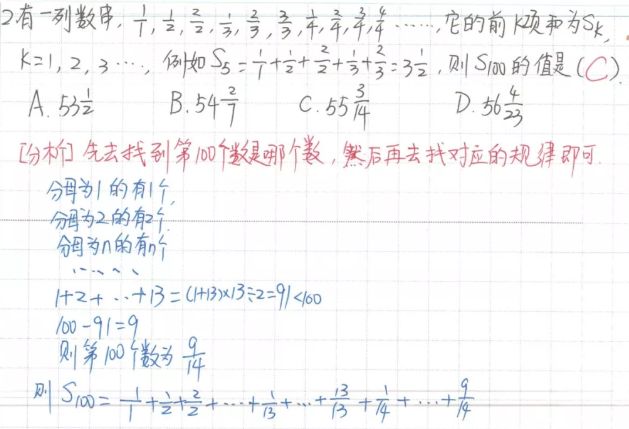 2.有一列数串, 1/1, 1/2, 2/2, 1/3, 2/3, 3/3, 1/4, 2/4, 3/4, 4/4 ……, 它的前K项和为Sk,
K=1, 2, 3 …, 例如 S5=1/1+1/2+2/2+1/3+2/3=3 1/2, 则S100的值是(C).
A. 53 1/2 B. 54 2/7 C. 55 3/14 D. 56 4/23
[分析] 先去找到第100个数是哪个数, 然后再去找对应的规律即可.
分母为1的有1个,
分母为2的有2个.
分母为n的有n个
……
1+2+…+13=(1+13)×13÷2=91<100
100-91=9
则第100个数为 9/14
则 S100= 1/1+1/2+2/2+…+1/13+…+13/13+1/14+…+9/14